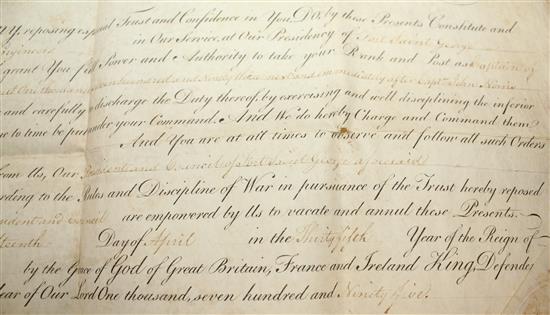 reposing especial Trust and Confidence in You, DO, by these Presents Constitute and
in Our Service, at Our Presidency of Fort Saint George
Engineers
grant You full Power and Authority to take your Rank and Post as Captain
One thousand seven hundred and Ninety immediately after Captn. John Norris
and carefully to discharge the Duty thereof, by exercising and well disciplining the inferior
to time be put under your Command. And We do hereby Charge and Command them
And You are at all times to observe and follow all such Orders
from Us, Our President and Council of Fort Saint George aforesaid
according to the Rules and Discipline of War in pursuance of the Trust hereby reposed
President and Council are empowered by Us to vacate and annul these Presents.
teenth Day of April in the Thirty fifth Year of the Reign of
by the Grace of God of Great Britain, France and Ireland King, Defender
Year of Our Lord One thousand, seven hundred and Ninety Five.